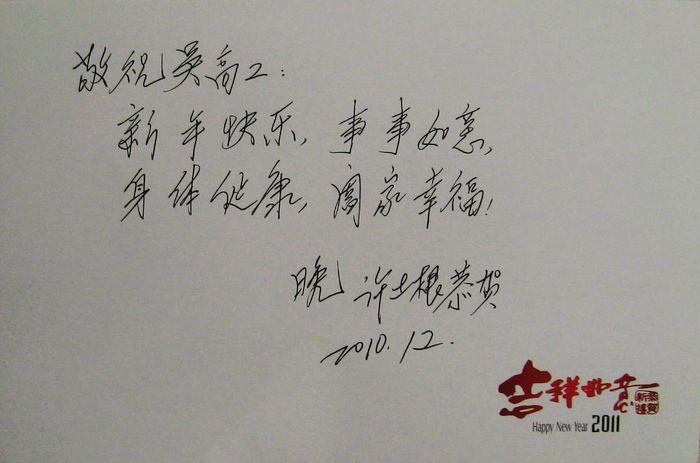 敬祝吴高工：
新年快乐，事事如意，
身体健康，阖家幸福！
晚 许土根恭贺
2010.12.
吉祥如意
恭贺新禧
Happy New Year 2011